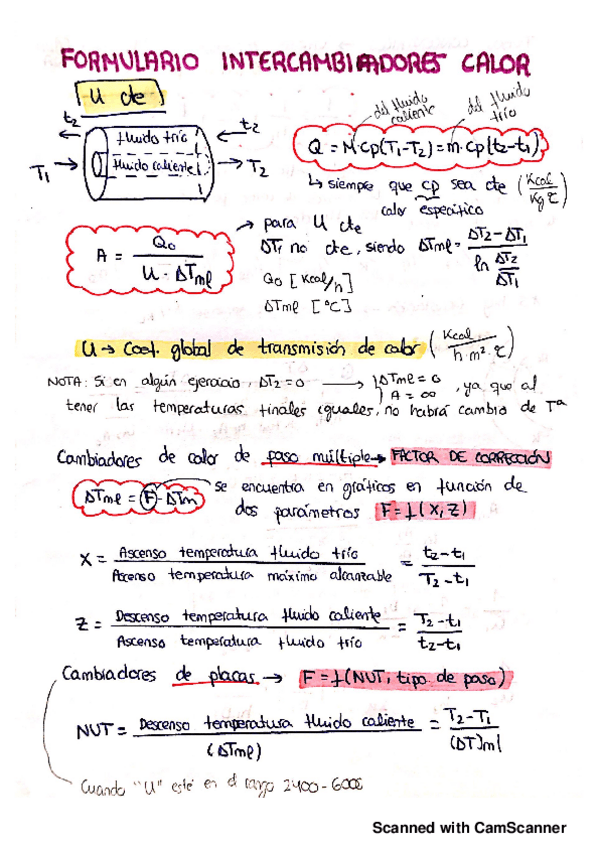 FORMULARIO INTERCAMBIADORES CALOR
U cte
t2
t2
fluido frío
fluido caliente
T1
T2
del fluido caliente
del fluido frío
Q = M·cp(T1-T2) = m·cp(t2-t1)
↳ siempre que cp sea cte (Kcal/Kg ℃)
calor específico
A = Qo / U · ΔTml
→ para U cte
ΔTi no cte, siendo ΔTml = ΔT2-ΔT1 / ln ΔT2/ΔT1
Qo [Kcal/h]
ΔTml [°C]
U → Coef. global de transmisión de calor (Kcal / h·m²·℃)
NOTA: Si en algún ejercicio, ΔT2=0 → ΔTml=0
A=∞
, ya que al
tener las temperaturas finales iguales, no habrá cambio de Tª
Cambiadores de calor de paso múltiple → FACTOR DE CORRECCIÓN
ΔTml = F·ΔTm
se encuentra en gráficos en función de
dos parámetros F=f(X,Z)
X = Ascenso temperatura fluido frío / Ascenso temperatura máximo alcanzable = t2-t1 / T2-t1
Z = Descenso temperatura fluido caliente / Ascenso temperatura fluido frío = T2-t1 / t2-t1
Cambiadores de placas → F=f(NUT, tipo de paso)
NUT = Descenso temperatura fluido caliente / (ΔTml) = T2-T1 / (ΔT)ml
Cuando "U" esté en el rango 2400-6000
Scanned with CamScanner